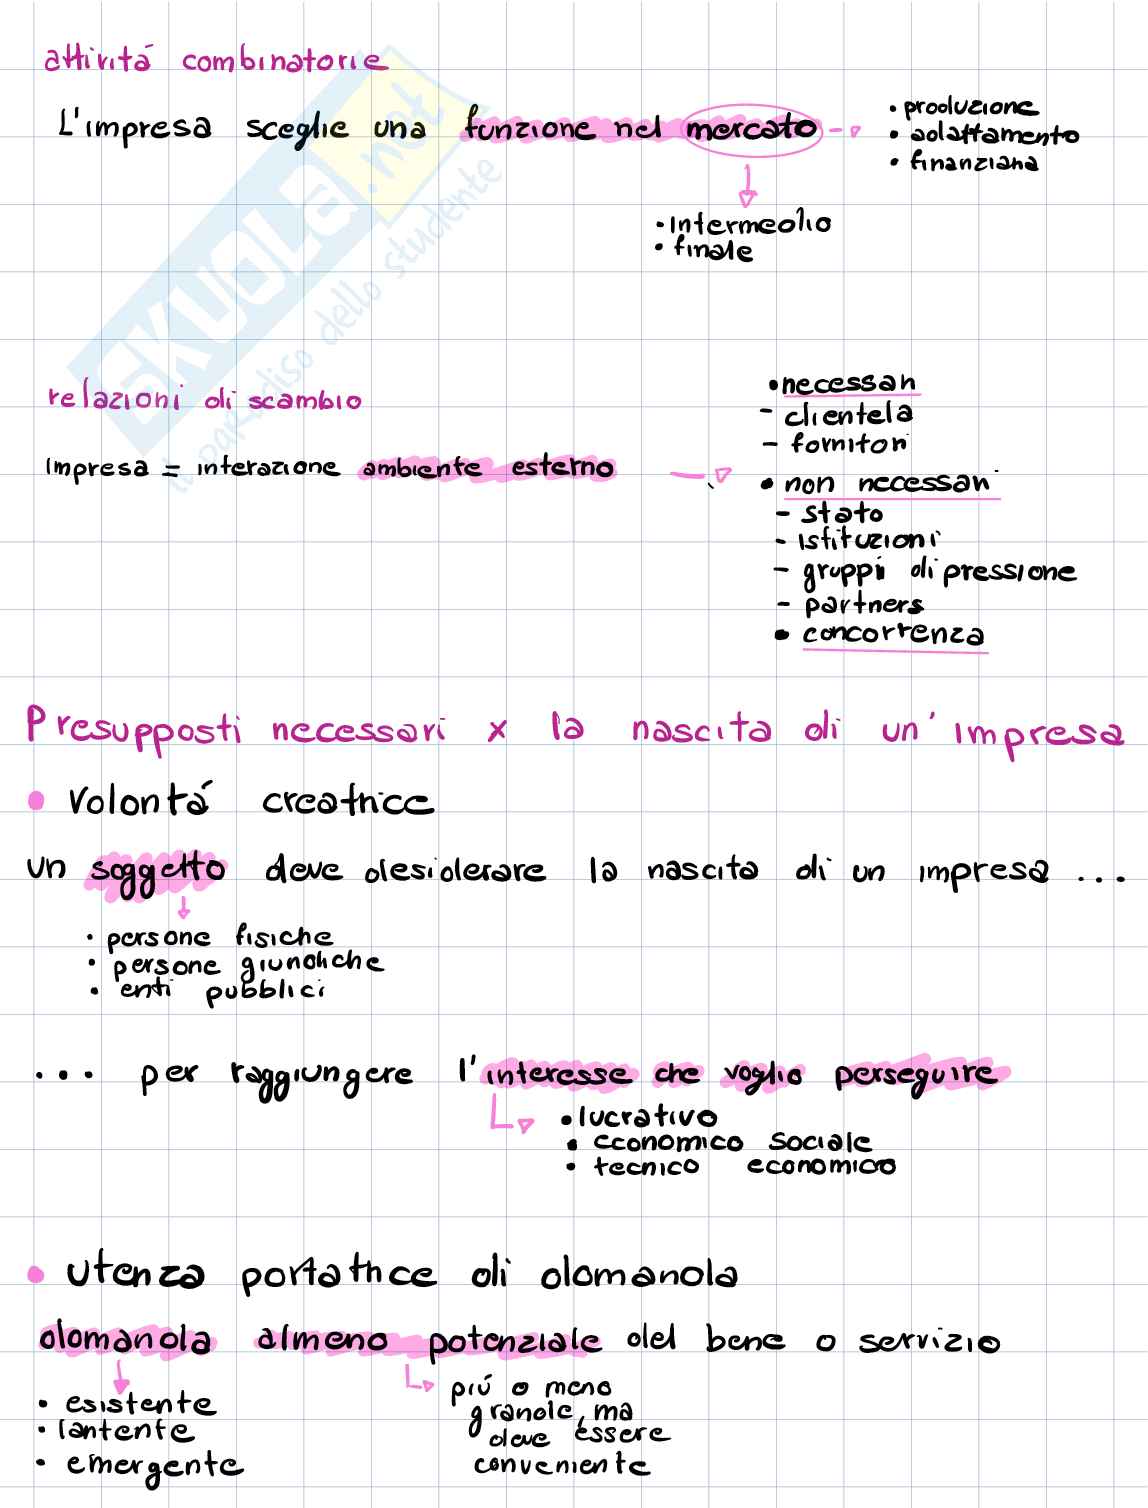 attivitá combinatorie
L'impresa sceglie una funzione nel mercato
• produzione
• adattamento
• finanziaria
• Intermedio
• finale
SKUOLA.net
il paradiso dello studente
relazioni di scambio
Impresa = interazione ambiente esterno
• necessari
- clientela
- fornitori
• non necessari
- stato
- istituzioni
- gruppi di pressione
- partners
• concorrenza
Presupposti necessari x la nascita di un'impresa
• Volontá creatrice
un soggetto deve desiderare la nascita di un impresa ...
• persone fisiche
• persone giuridiche
• enti pubblici
... per raggiungere l'interesse che voglio perseguire
• lucrativo
• economico sociale
• tecnico economico
• utenza portatrice di domanda
domanda almeno potenziale del bene o servizio
• esistente
• lantente
• emergente
piú o meno
grande, ma
deve essere
conveniente